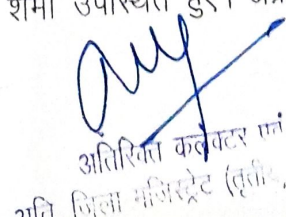 शर्मा उपस्थित हुए।
अतिरिक्त कलेक्टर एवं
अति जिला मजिस्ट्रेट (तृतीय,